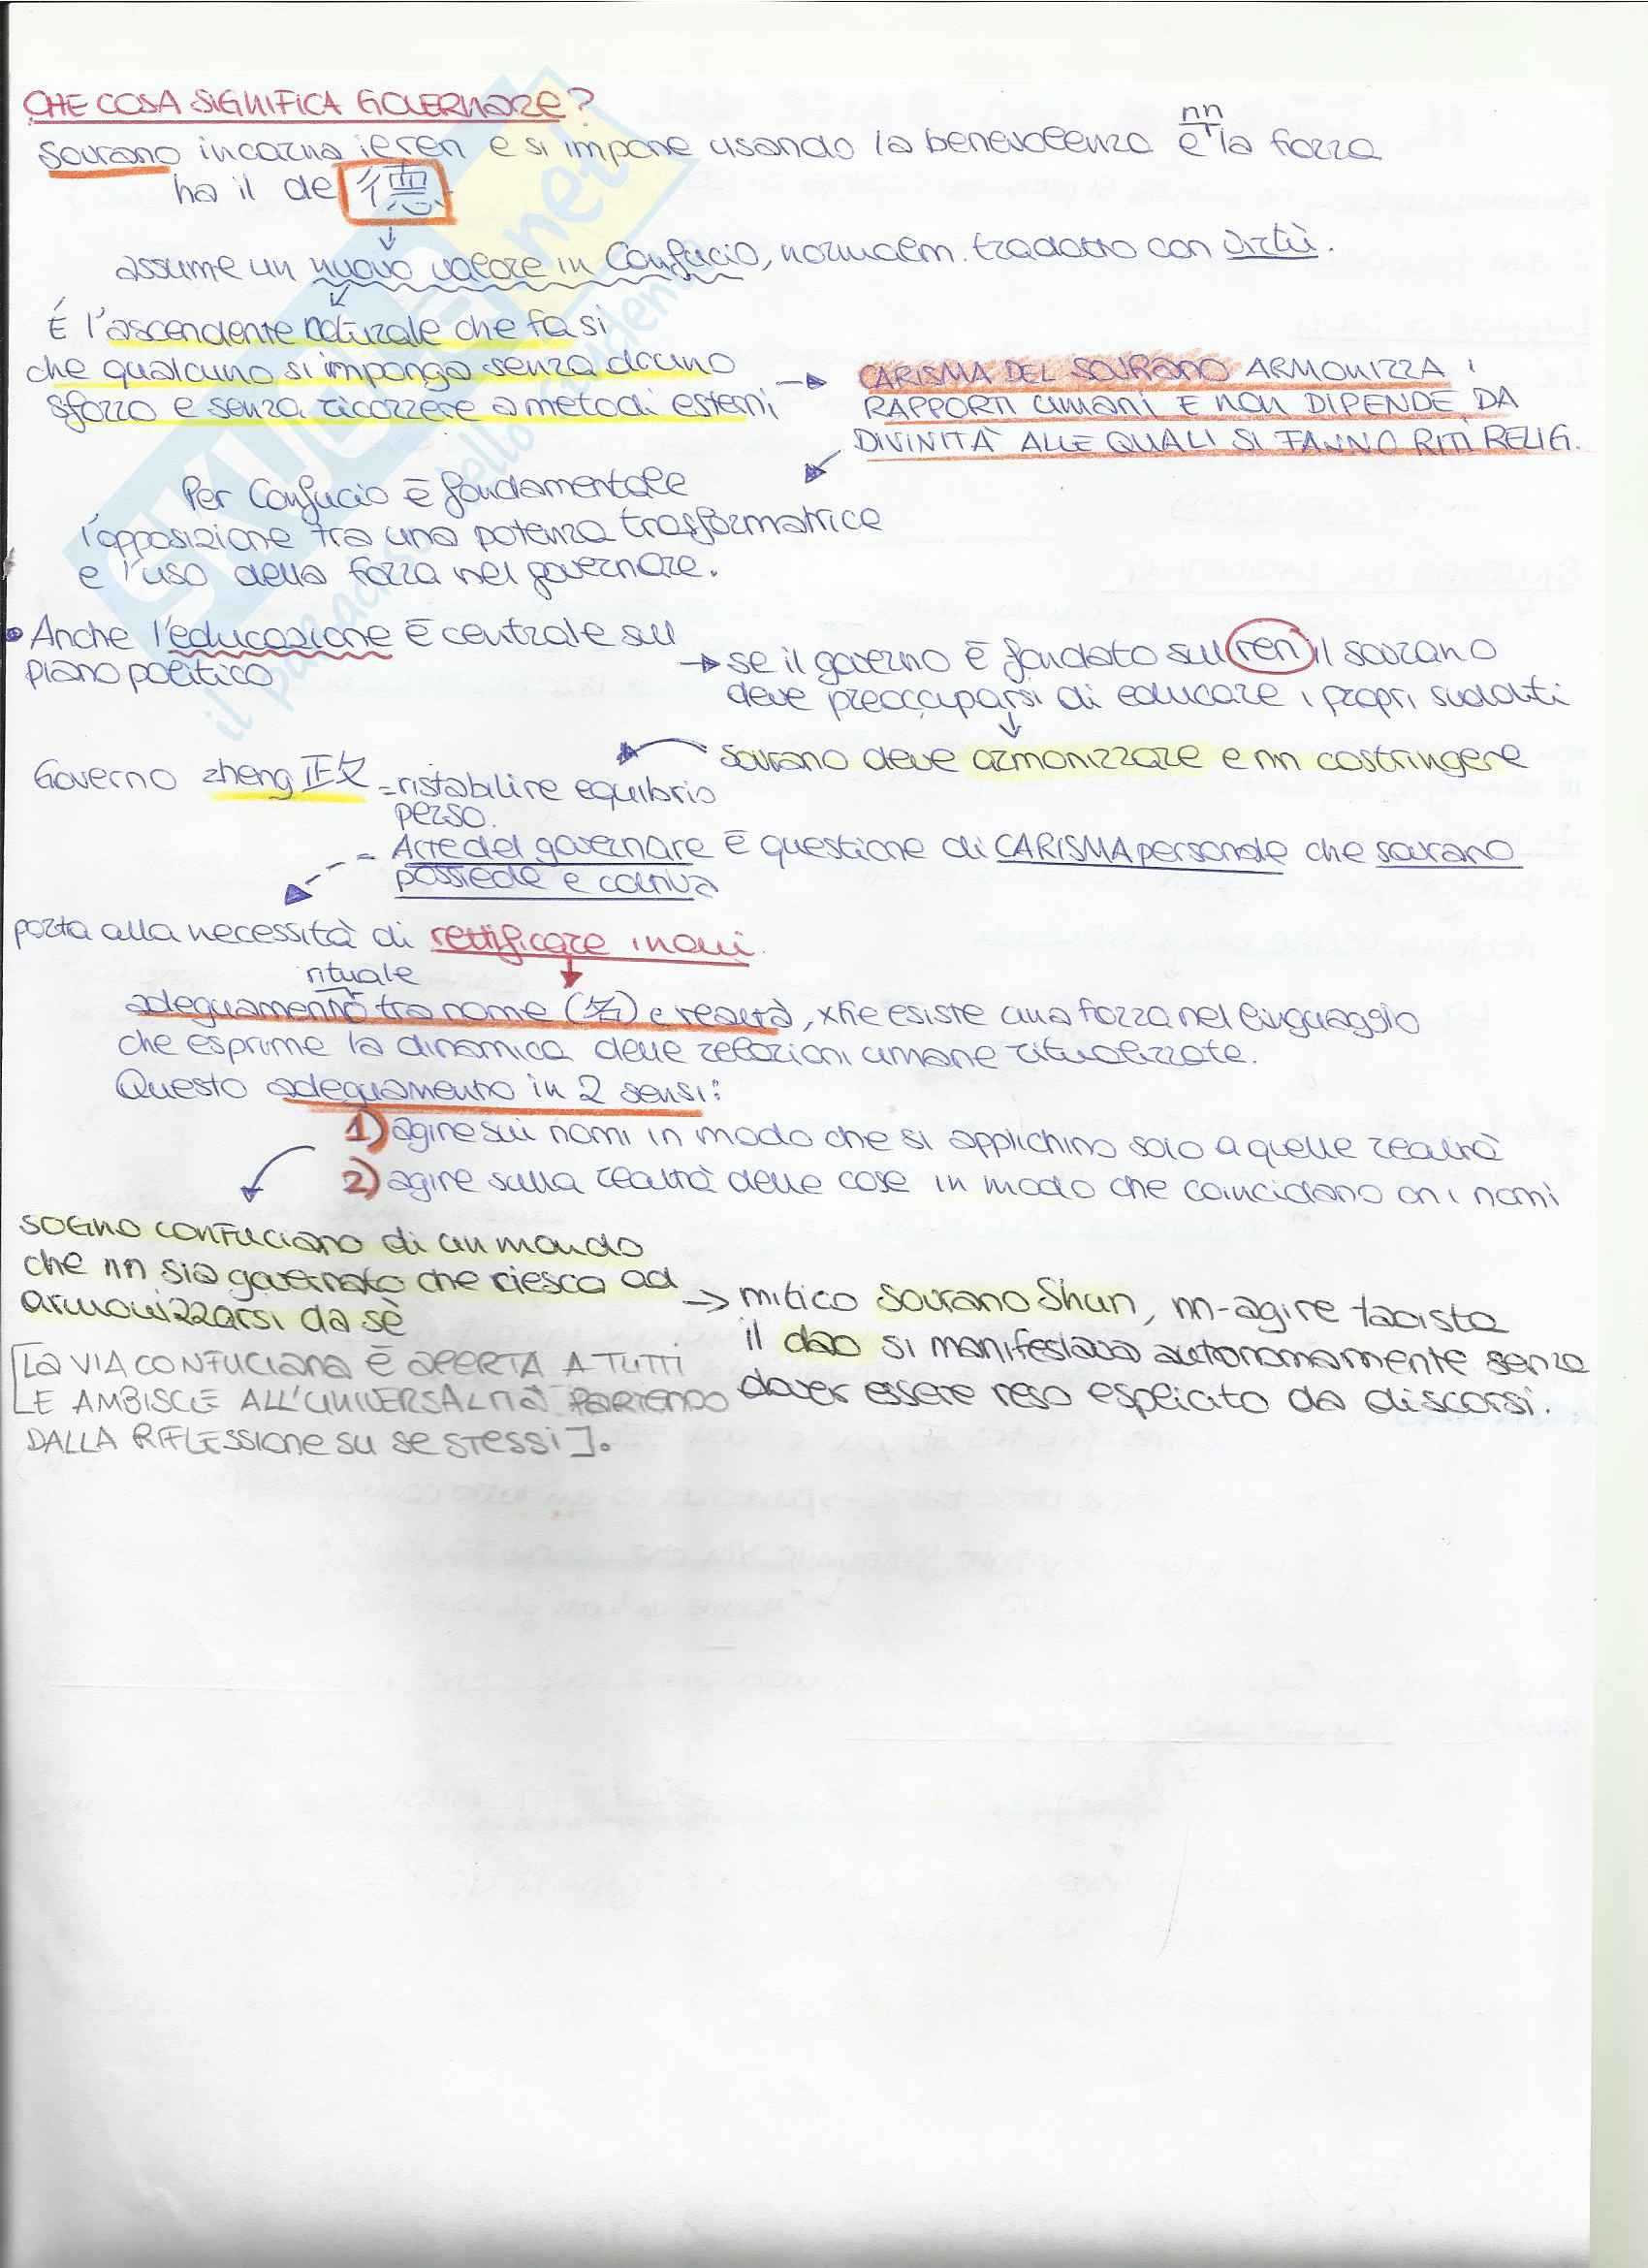 CHE COSA SIGNIFICA GOVERNARE?
Sovrano incarna il ren e si impone usando la benevolenza e nn la forza
ha il de 德
assume un nuovo valore in Confucio, normalm. tradotto con virtù.
É l'ascendente naturale che fa sì
che qualcuno si imponga senza alcuno
sforzo e senza ricorrere a metodi esterni
→ CARISMA DEL SOVRANO ARMONIZZA i
RAPPORTI UMANI E NON DIPENDE DA
DIVINITÀ ALLE QUALI SI FANNO RITI RELIG.
Per Confucio è fondamentale
l'opposizione tra una potenza trasformatrice
e l'uso della forza nel governare.
• Anche l'educazione è centrale sul
piano politico
→ se il governo è fondato sul ren il sovrano
deve preoccuparsi di educare i propri sudditi
sovrano deve armonizzare e nn costringere
Governo zheng 政 = ristabilire equilibrio
perso.
= Arte del governare è questione di CARISMA personale che sovrano
possiede e coltiva
porta alla necessità di rettificare i nomi.
adeguamento rituale tra nome (名) e realtà, xke esiste una forza nel linguaggio
che esprime la dinamica delle relazioni umane ritualizzate.
Questo adeguamento in 2 sensi:
1) agire sui nomi in modo che si applichino solo a quelle realtà
2) agire sulla realtà delle cose in modo che coincidano con i nomi
SOGNO CONFUCIANO di un mondo
che nn sia governato che riesca ad
armonizzarsi da sè
→ mitico sovrano Shun, nn-agire taoista
il dao si manifestava autonomamente senza
dover essere reso esplicito da discorsi.
[LA VIA CONFUCIANA È APERTA A TUTTI
E AMBISCE ALL'UNIVERSALITÀ PARTENDO
DALLA RIFLESSIONE SU SE STESSI].
SKUOLA.net
il paradiso dello studente